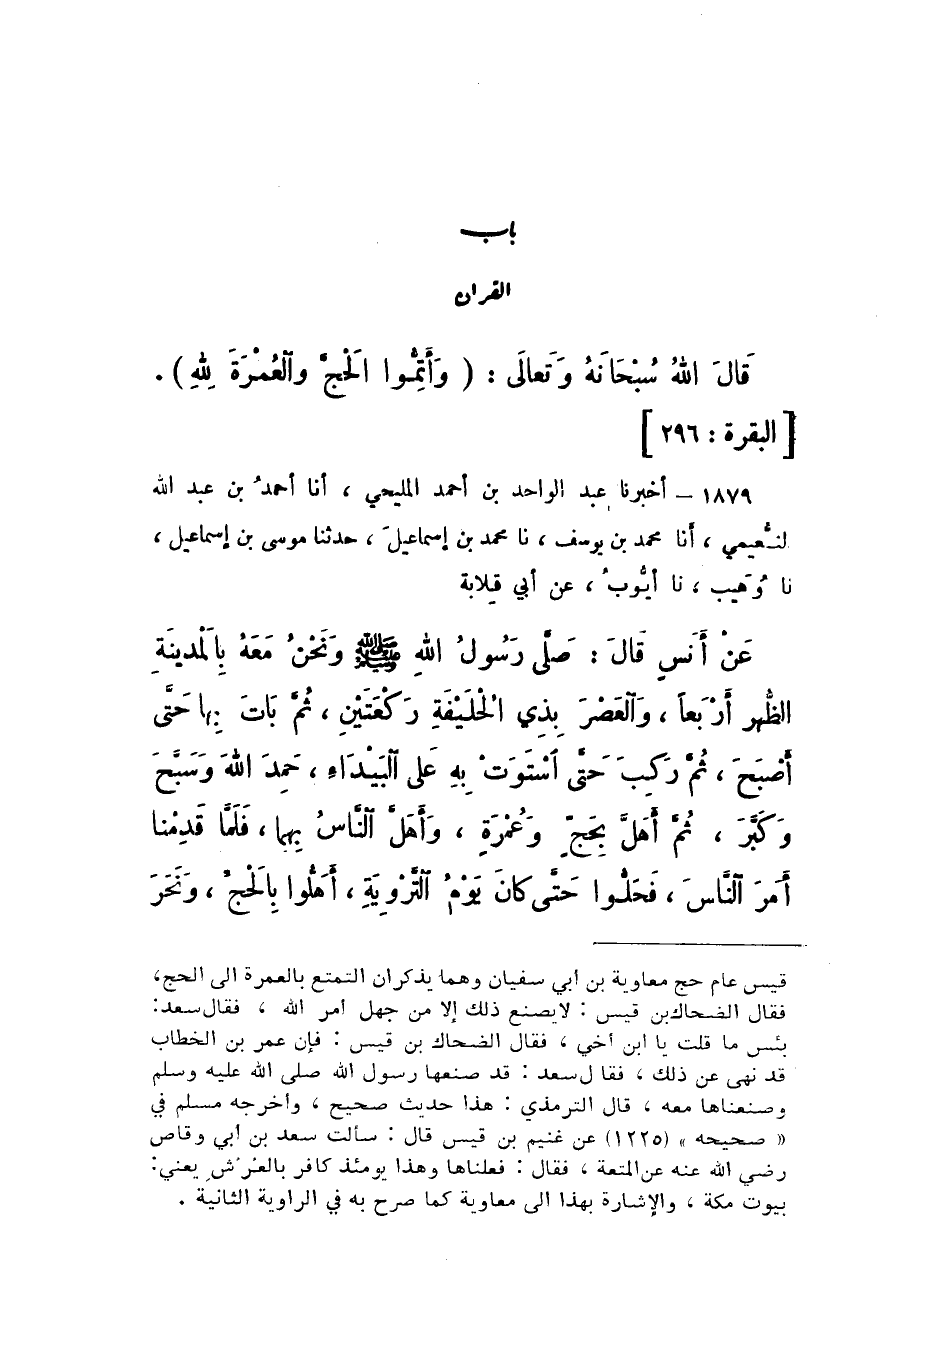 باب
القران
قَالَ اللهُ سُبْحَانَهُ وَتَعالَى : ( وَأَتِمُّوا الْحَجَّ والْعُمْرَةَ لِلهِ ) .
[ البقرة : ٢٩٦ ]
١٨٧٩ – أخبرنا عبد الواحد بن أحمد المليحي ، أنا أحمدُ بن عبد الله
لنُّعيمي ، أنا محمد بن يوسف ، نا محمد بن إسماعيلَ ، حدثنا موسى بن إسماعيل ،
نا وُهَيب ، نا أيُّوبُ ، عن أبي قِلابة
عَنْ أَنَسٍ قَالَ : صَلَّى رَسُولُ اللهِ ﷺ وَنَحْنُ مَعَهُ بِالْمَدينَةِ
الظُّهر أَرْبَعاً ، وَالْعَصْرَ بِذِي الْحُلَيْفَةِ رَكْعَتَيْنِ ، ثُمَّ بَاتَ بِها حَتَّى
أَصْبَحَ ، ثُمَّ رَكِبَ حَتَّى اسْتَوَتْ بِهِ عَلى الْبَيْدَاءِ ، حَمِدَ اللهَ وَسَبَّحَ
وَكَبَّرَ ، ثُمَّ أَهَلَّ بِحَجٍّ وَعُمْرَةٍ ، وَأَهَلَّ النَّاسُ بِهِما ، فَلَمَّا قَدِمْنا
أَمَرَ النَّاسَ ، فَحَلُّوا حَتَّى كانَ يَوْمُ التَّرْوِيَةِ ، أَهَلُّوا بِالْحَجِّ ، وَنَحَرَ
قيس عام حج معاوية بن أبي سفيان وهما يذكران التمتع بالعمرة الى الحج،
فقال الضحاك بن قيس : لا يصنع ذلك إلا من جهل أمر الله ، فقال سعد:
بئس ما قلت يا ابن أخي ، فقال الضحاك بن قيس : فإن عمر بن الخطاب
قد نهى عن ذلك ، فقا ل سعد : قد صنعها رسول الله صلى الله عليه وسلم
وصنعناها معه ، قال الترمذي : هذا حديث صحيح ، وأخرجه مسلم في
« صحيحه » (١٢٢٥) عن غنيم بن قيس قال : سألت سعد بن أبي وقاص
رضي الله عنه عن المتعة ، فقال : فعلناها وهذا يومئذ كافر بالعُرُش يعني:
بيوت مكة ، والإشارة بهذا الى معاوية كما صرح به في الراوية الثانية .